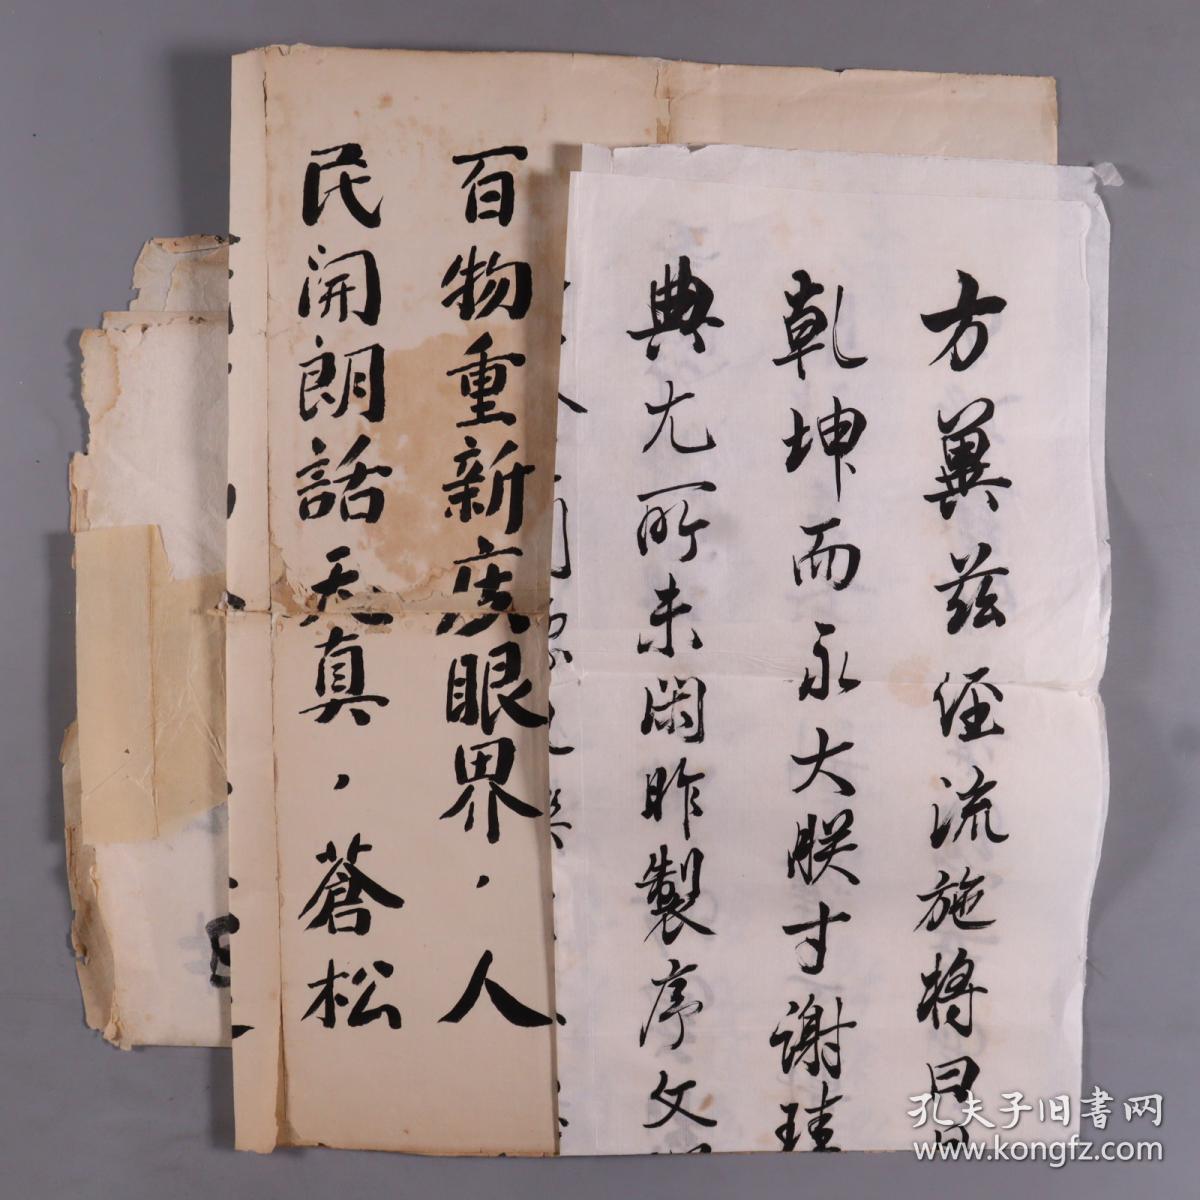 方冀茲經流施將日月
乾坤而永大朕才謝珪
典尤所未閑昨製序文
百物重新廣眼界，人
民開朗話天真，蒼松
孔夫子旧書网
www.kongfz.com